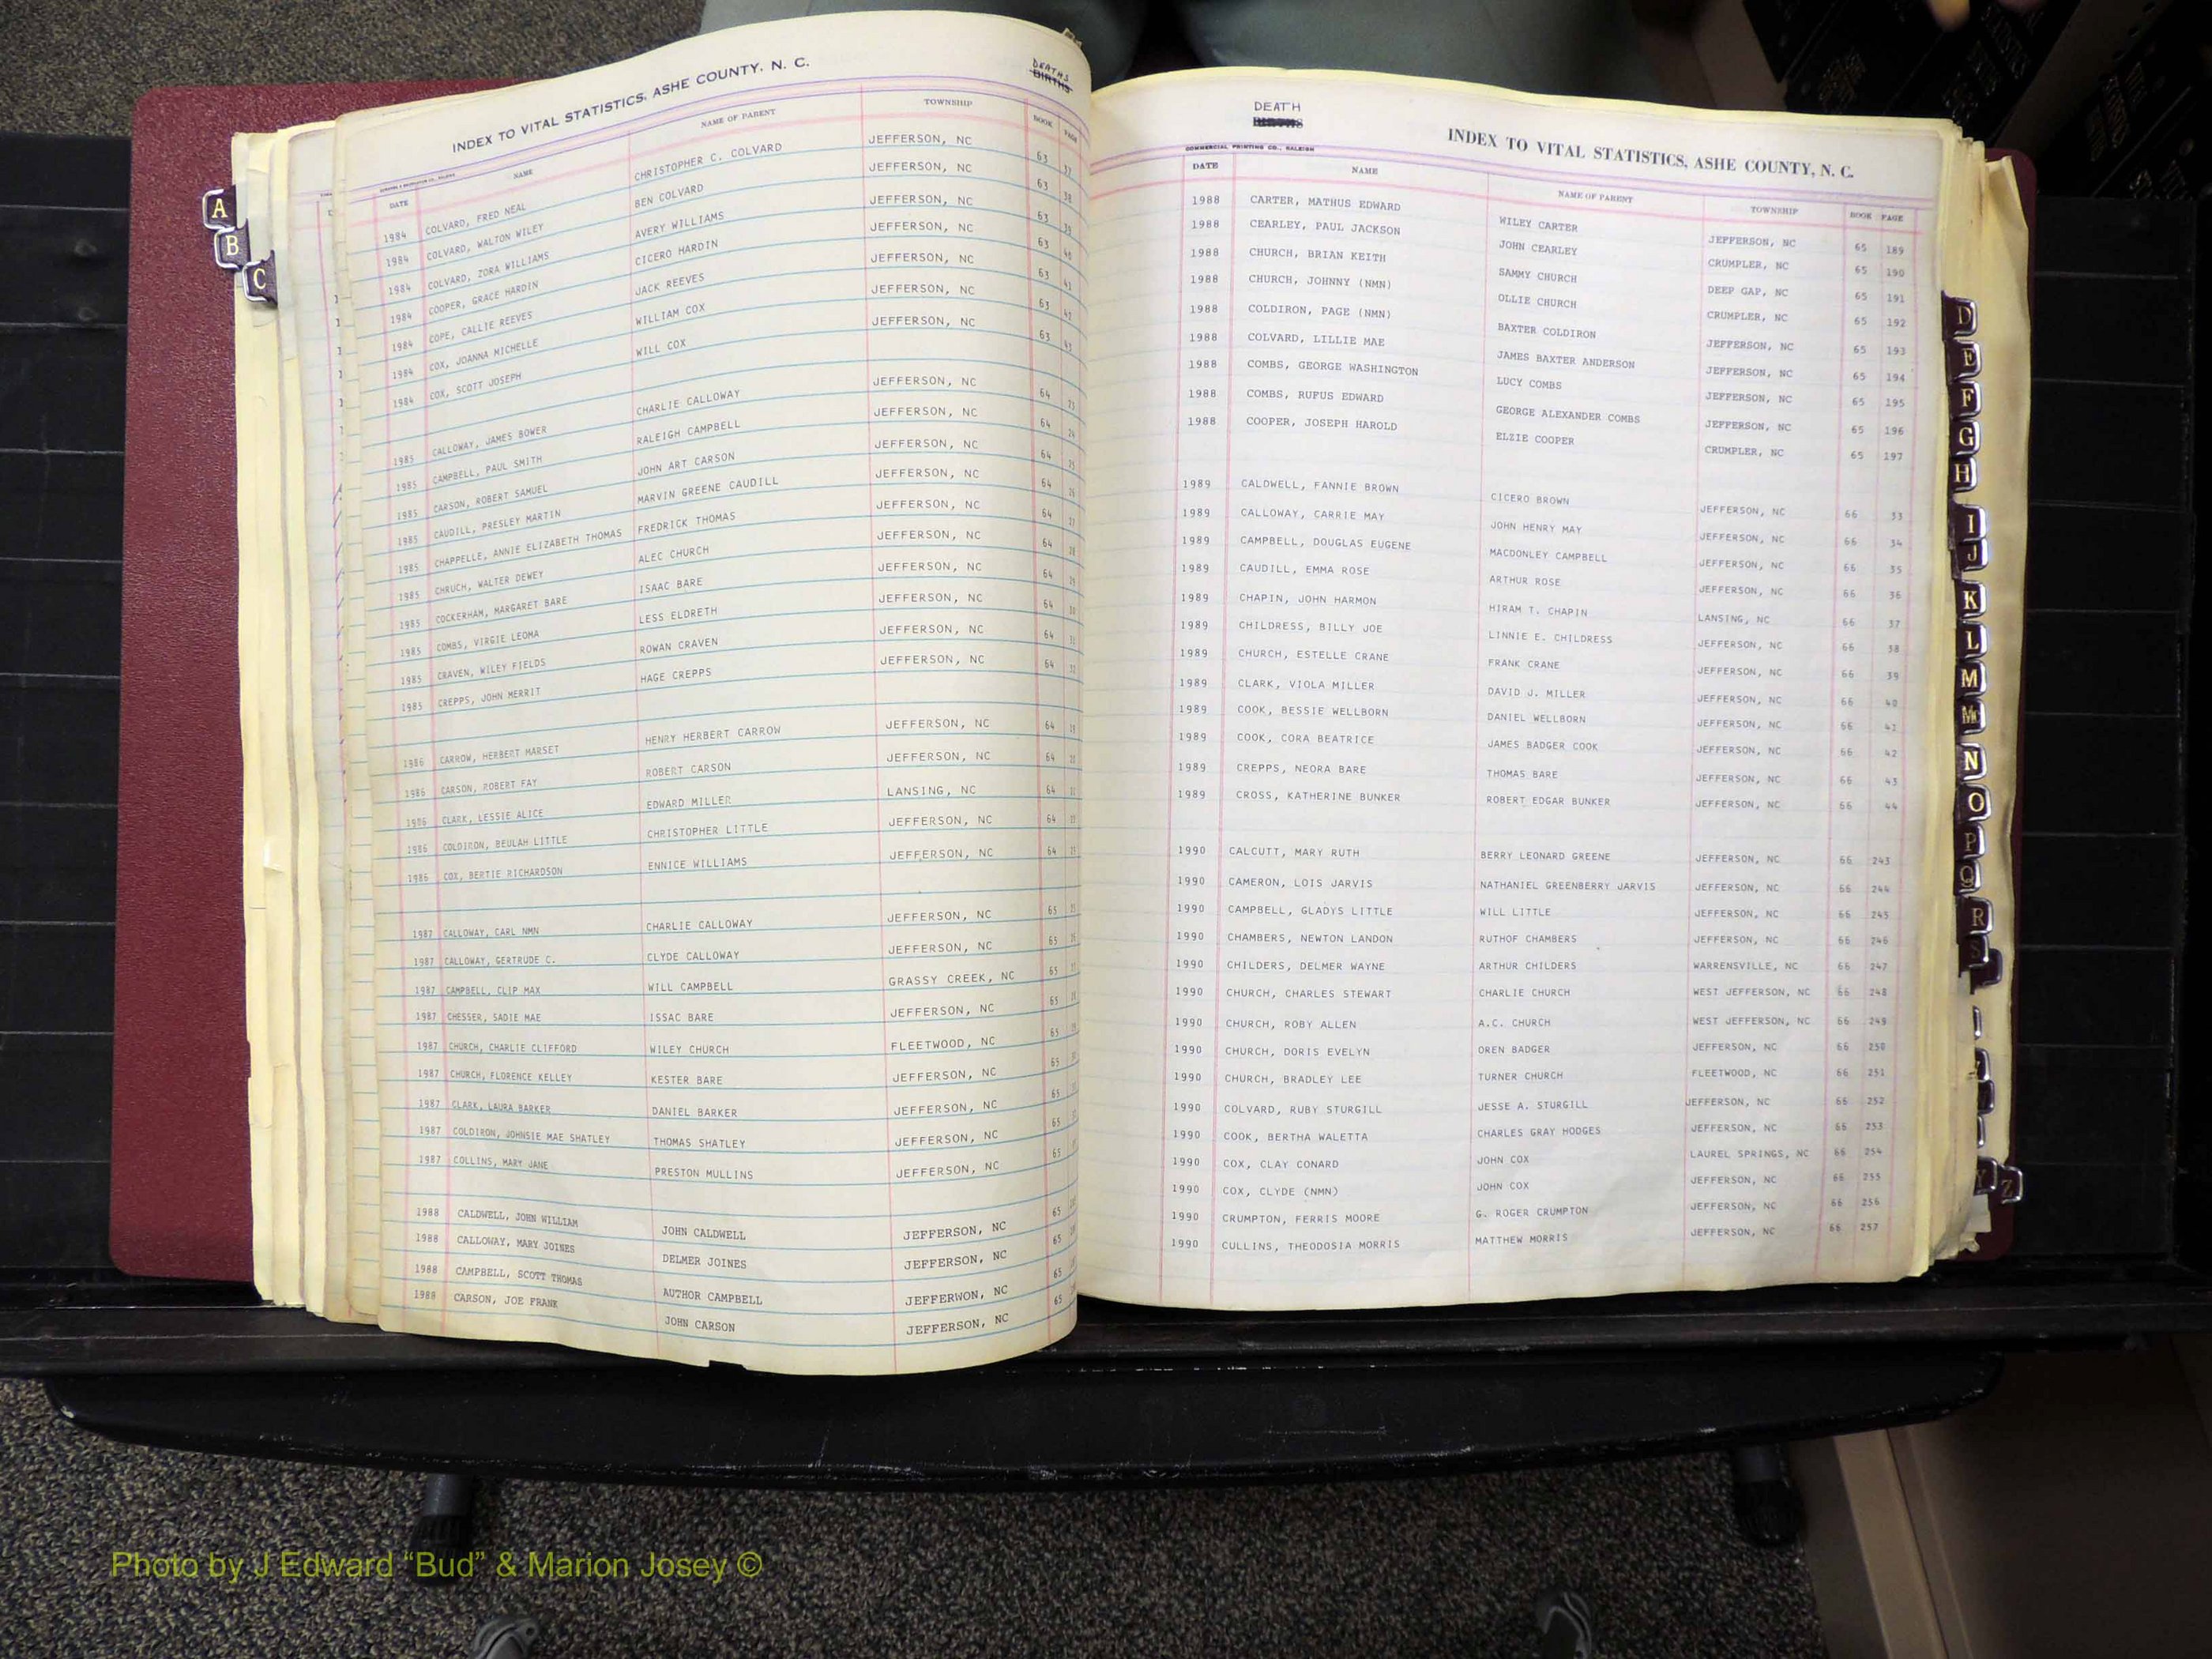 INDEX TO VITAL STATISTICS, ASHE COUNTY, N. C.
DEATHS
BIRTHS
DATE NAME NAME OF PARENT TOWNSHIP BOOK PAGE
1984 COLVARD, FRED NEAL CHRISTOPHER C. COLVARD JEFFERSON, NC 63 37
1984 COLVARD, WALTON WILEY BEN COLVARD JEFFERSON, NC 63 38
1984 COLVARD, ZORA WILLIAMS AVERY WILLIAMS JEFFERSON, NC 63 39
1984 COOPER, GRACE HARDIN CICERO HARDIN JEFFERSON, NC 63 40
1984 COPE, CALLIE REEVES JACK REEVES JEFFERSON, NC 63 41
1984 COX, JOANNA MICHELLE WILLIAM COX JEFFERSON, NC 63 42
1984 COX, SCOTT JOSEPH WILL COX JEFFERSON, NC 63 43
1985 CALLOWAY, JAMES BOWER CHARLIE CALLOWAY JEFFERSON, NC 64
1985 CAMPBELL, PAUL SMITH RALEIGH CAMPBELL JEFFERSON, NC 64
1985 CARSON, ROBERT SAMUEL JOHN ART CARSON JEFFERSON, NC 64
1985 CAUDILL, PRESLEY MARTIN MARVIN GREENE CAUDILL JEFFERSON, NC 64
1985 CHAPPELLE, ANNIE ELIZABETH THOMAS FREDRICK THOMAS JEFFERSON, NC 64
1985 CHRUCH, WALTER DEWEY ALEC CHURCH JEFFERSON, NC 64
1985 COCKERHAM, MARGARET BARE ISAAC BARE JEFFERSON, NC 64
1985 COMBS, VIRGIE LEOMA LESS ELDRETH JEFFERSON, NC 64
1985 CRAVEN, WILEY FIELDS ROWAN CRAVEN JEFFERSON, NC 64
1985 CREPPS, JOHN MERRIT HAGE CREPPS JEFFERSON, NC 64
1986 CARROW, HERBERT MARSET HENRY HERBERT CARROW JEFFERSON, NC 64
1986 CARSON, ROBERT FAY ROBERT CARSON JEFFERSON, NC 64
1986 CLARK, LESSIE ALICE EDWARD MILLER LANSING, NC 64
1986 COLDIRON, BEULAH LITTLE CHRISTOPHER LITTLE JEFFERSON, NC 64
1986 COX, BERTIE RICHARDSON ENNICE WILLIAMS JEFFERSON, NC 64
1987 CALLOWAY, CARL NMN CHARLIE CALLOWAY JEFFERSON, NC 65
1987 CALLOWAY, GERTRUDE C. CLYDE CALLOWAY JEFFERSON, NC 65
1987 CAMPBELL, CLIP MAX WILL CAMPBELL GRASSY CREEK, NC 65
1987 CHESSER, SADIE MAE ISSAC BARE JEFFERSON, NC 65
1987 CHURCH, CHARLIE CLIFFORD WILEY CHURCH FLEETWOOD, NC 65
1987 CHURCH, FLORENCE KELLEY KESTER BARE JEFFERSON, NC 65
1987 CLARK, LAURA BARKER DANIEL BARKER JEFFERSON, NC 65
1987 COLDIRON, JOHNSIE MAE SHATLEY THOMAS SHATLEY JEFFERSON, NC 65
1987 COLLINS, MARY JANE PRESTON MULLINS JEFFERSON, NC 65
1988 CALDWELL, JOHN WILLIAM JOHN CALDWELL JEFFERSON, NC 65
1988 CALLOWAY, MARY JOINES DELMER JOINES JEFFERSON, NC 65
1988 CAMPBELL, SCOTT THOMAS AUTHOR CAMPBELL JEFFERWON, NC 65
1988 CARSON, JOE FRANK JOHN CARSON JEFFERSON, NC 65
DEATH
COMMERCIAL PRINTING CO., RALEIGH
INDEX TO VITAL STATISTICS, ASHE COUNTY, N. C.
DATE NAME NAME OF PARENT TOWNSHIP BOOK PAGE
1988 CARTER, MATHUS EDWARD WILEY CARTER JEFFERSON, NC 65 189
1988 CEARLEY, PAUL JACKSON JOHN CEARLEY CRUMPLER, NC 65 190
1988 CHURCH, BRIAN KEITH SAMMY CHURCH DEEP GAP, NC 65 191
1988 CHURCH, JOHNNY (NMN) OLLIE CHURCH CRUMPLER, NC 65 192
1988 COLDIRON, PAGE (NMN) BAXTER COLDIRON JEFFERSON, NC 65 193
1988 COLVARD, LILLIE MAE JAMES BAXTER ANDERSON JEFFERSON, NC 65 194
1988 COMBS, GEORGE WASHINGTON LUCY COMBS JEFFERSON, NC 65 195
1988 COMBS, RUFUS EDWARD GEORGE ALEXANDER COMBS JEFFERSON, NC 65 196
1988 COOPER, JOSEPH HAROLD ELZIE COOPER CRUMPLER, NC 65 197
1989 CALDWELL, FANNIE BROWN CICERO BROWN JEFFERSON, NC 66 33
1989 CALLOWAY, CARRIE MAY JOHN HENRY MAY JEFFERSON, NC 66 34
1989 CAMPBELL, DOUGLAS EUGENE MACDONLEY CAMPBELL JEFFERSON, NC 66 35
1989 CAUDILL, EMMA ROSE ARTHUR ROSE JEFFERSON, NC 66 36
1989 CHAPIN, JOHN HARMON HIRAM T. CHAPIN LANSING, NC 66 37
1989 CHILDRESS, BILLY JOE LINNIE E. CHILDRESS JEFFERSON, NC 66 38
1989 CHURCH, ESTELLE CRANE FRANK CRANE JEFFERSON, NC 66 39
1989 CLARK, VIOLA MILLER DAVID J. MILLER JEFFERSON, NC 66 40
1989 COOK, BESSIE WELLBORN DANIEL WELLBORN JEFFERSON, NC 66 41
1989 COOK, CORA BEATRICE JAMES BADGER COOK JEFFERSON, NC 66 42
1989 CREPPS, NEORA BARE THOMAS BARE JEFFERSON, NC 66 43
1989 CROSS, KATHERINE BUNKER ROBERT EDGAR BUNKER JEFFERSON, NC 66 44
1990 CALCUTT, MARY RUTH BERRY LEONARD GREENE JEFFERSON, NC 66 243
1990 CAMERON, LOIS JARVIS NATHANIEL GREENBERRY JARVIS JEFFERSON, NC 66 244
1990 CAMPBELL, GLADYS LITTLE WILL LITTLE JEFFERSON, NC 66 245
1990 CHAMBERS, NEWTON LANDON RUTHOF CHAMBERS JEFFERSON, NC 66 246
1990 CHILDERS, DELMER WAYNE ARTHUR CHILDERS WARRENSVILLE, NC 66 247
1990 CHURCH, CHARLES STEWART CHARLIE CHURCH WEST JEFFERSON, NC 66 248
1990 CHURCH, ROBY ALLEN A.C. CHURCH WEST JEFFERSON, NC 66 249
1990 CHURCH, DORIS EVELYN OREN BADGER JEFFERSON, NC 66 250
1990 CHURCH, BRADLEY LEE TURNER CHURCH FLEETWOOD, NC 66 251
1990 COLVARD, RUBY STURGILL JESSE A. STURGILL JEFFERSON, NC 66 252
1990 COOK, BERTHA WALETTA CHARLES GRAY HODGES JEFFERSON, NC 66 253
1990 COX, CLAY CONARD JOHN COX LAUREL SPRINGS, NC 66 254
1990 COX, CLYDE (NMN) JOHN COX JEFFERSON, NC 66 255
1990 CRUMPTON, FERRIS MOORE G. ROGER CRUMPTON JEFFERSON, NC 66 256
1990 CULLINS, THEODOSIA MORRIS MATTHEW MORRIS JEFFERSON, NC 66 257
A
B
C
D
E
F
G
H
I
J
K
L
M
Mc
N
O
P
Q
R
S
Y
Z
Photo by J Edward “Bud” & Marion Josey ©